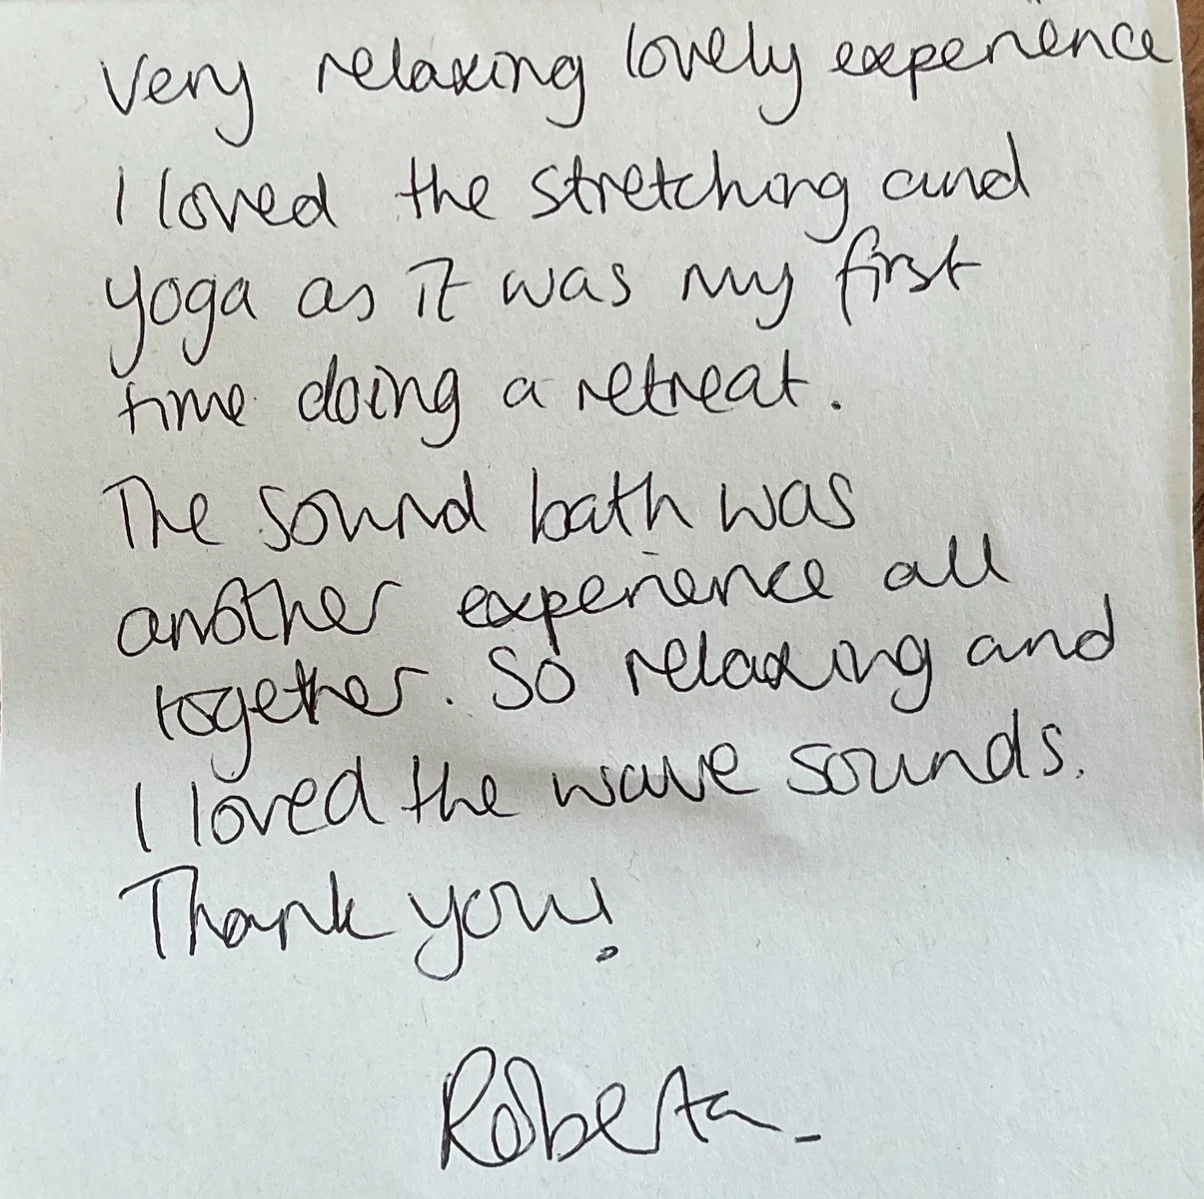 Very relaxing lovely experience
I loved the stretching and
yoga as it was my first
time doing a retreat.
The sound bath was
another experience all
together. So relaxing and
I loved the wave sounds.
Thank you!
Roberta_